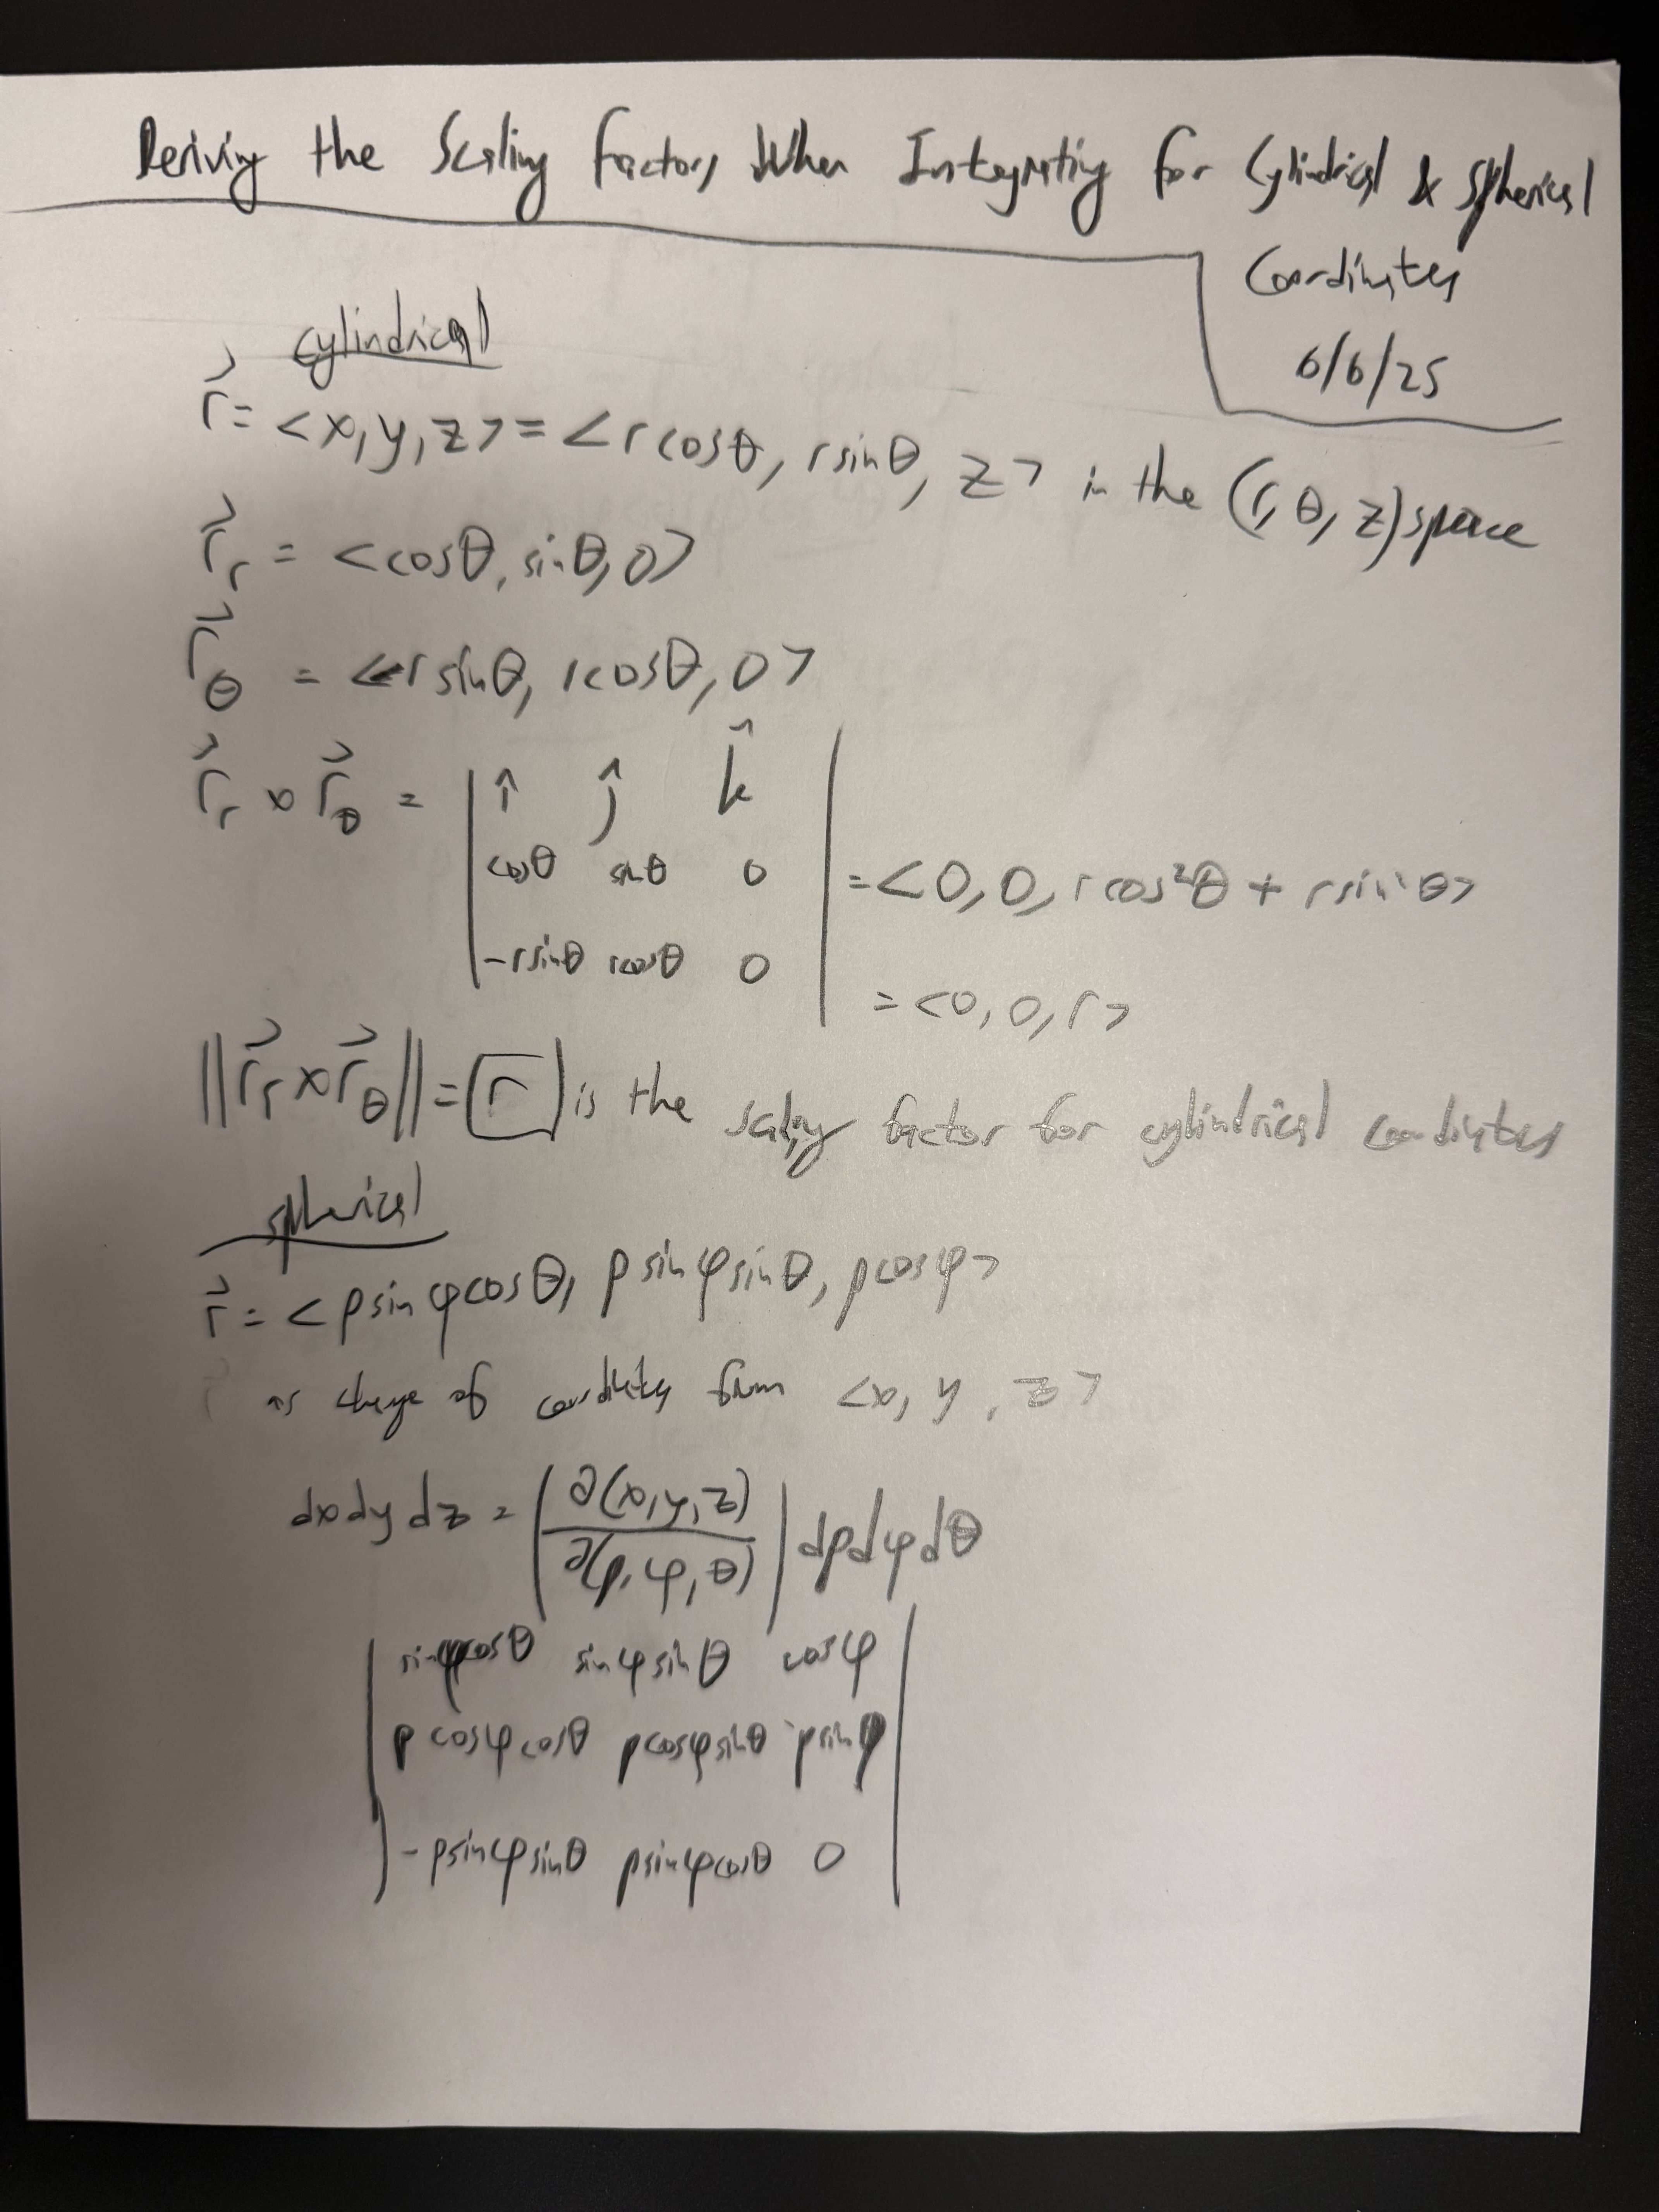 Deriving the Scaling Factors When Integrating for Cylindrical & Spherical
Coordinates
6/6/25
cylindrical
r⃗ = <x, y, z> = <r cosθ, r sinθ, z> in the (r, θ, z) space
r⃗_r = <cosθ, sinθ, 0>
r⃗_θ = <-r sinθ, r cosθ, 0>
r⃗_r × r⃗_θ = | î ĵ k̂ |
| cosθ sinθ 0 | = <0, 0, r cos²θ + r sin²θ>
| -r sinθ r cosθ 0 |
= <0, 0, r>
||r⃗_r × r⃗_θ|| = r is the scaling factor for cylindrical coordinates
spherical
r⃗ = <ρ sinφ cosθ, ρ sinφ sinθ, ρ cosφ>
as change of coordinates from <x, y, z>
dx dy dz = | ∂(x, y, z) / ∂(ρ, φ, θ) | dρ dφ dθ
| sinφ cosθ sinφ sinθ cosφ |
| ρ cosφ cosθ ρ cosφ sinθ -ρ sinφ |
| -ρ sinφ sinθ ρ sinφ cosθ 0 |